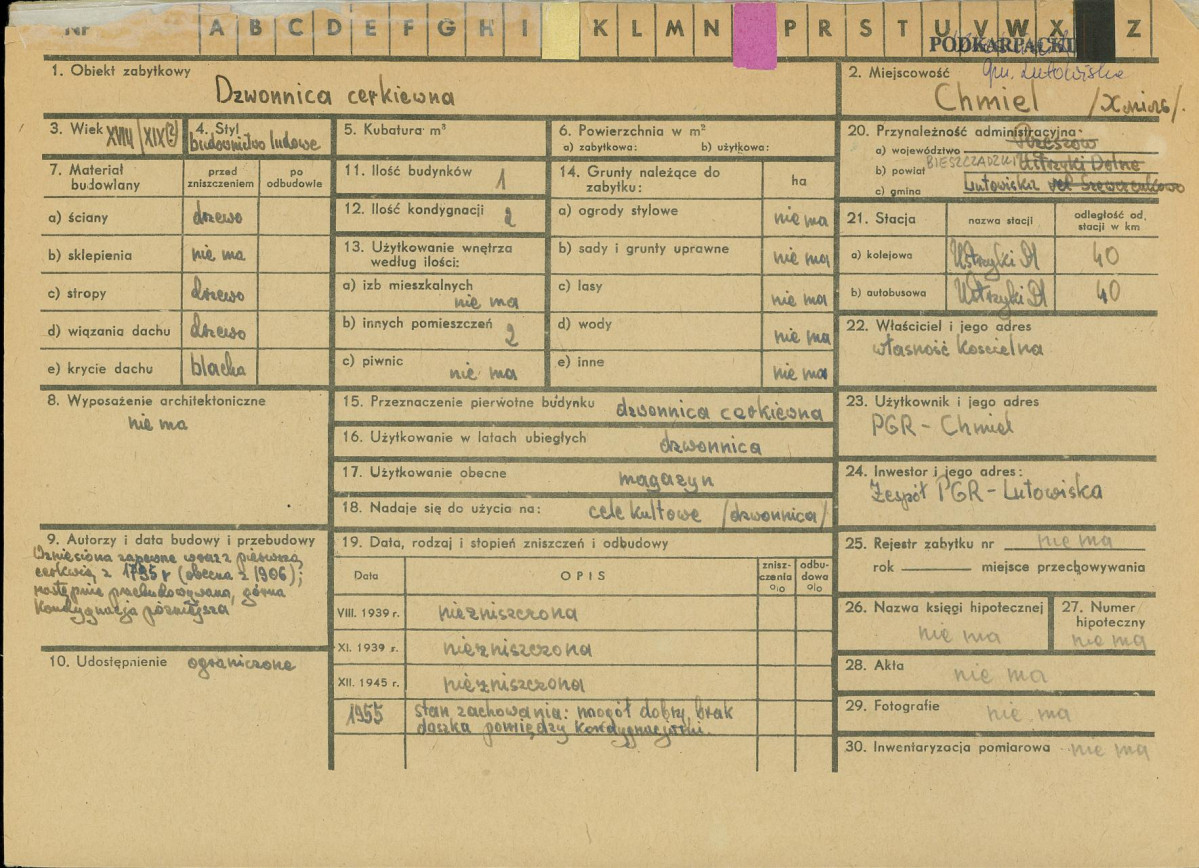 Nr A B C D E F G H I K L M N P R S T U V W X Z
PODKARPACKI
gm. Lutowiska
1. Obiekt zabytkowy
Dzwonnica cerkiewna
2. Miejscowość
Chmiel
3. Wiek XVIII/XIX(?)
4. Styl
budownictwo ludowe
5. Kubatura m³
6. Powierzchnia w m²
a) zabytkowa: b) użytkowa:
7. Materiał budowlany
przed zniszczeniem
po odbudowie
a) ściany drzewo
b) sklepienia nie ma
c) stropy drzewo
d) wiązania dachu drzewo
e) krycie dachu blacha
8. Wyposażenie architektoniczne
nie ma
9. Autorzy i data budowy i przebudowy
Wzniesiona zapewne wraz z pierwszą
cerkwią z 1795 r (obecna z 1906);
następnie przebudowywana, górna
kondygnacja późniejsza
10. Udostępnienie ograniczone
11. Ilość budynków 1
12. Ilość kondygnacji 2
13. Użytkowanie wnętrza
według ilości:
a) izb mieszkalnych
nie ma
b) innych pomieszczeń 2
c) piwnic nie ma
14. Grunty należące do
zabytku:
ha
a) ogrody stylowe nie ma
b) sady i grunty uprawne nie ma
c) lasy nie ma
d) wody nie ma
e) inne nie ma
15. Przeznaczenie pierwotne budynku dzwonnica cerkiewna
16. Użytkowanie w latach ubiegłych dzwonnica
17. Użytkowanie obecne magazyn
18. Nadaje się do użycia na: cele kultowe /dzwonnica/
19. Data, rodzaj i stopień zniszczeń i odbudowy
Data
OPIS
znisz-
czenia
%
odbu-
dowa
%
VIII. 1939 r. niezniszczona
XI. 1939 r. niezniszczona
XII. 1945 r. niezniszczona
1955 stan zachowania: naogół dobry, brak
daszka pomiędzy kondygnacjami.
20. Przynależność administracyjna:
a) województwo Rzeszów
b) powiat BIESZCZADZKI Ustrzyki Dolne
c) gmina Lutowiska
21. Stacja
nazwa stacji
odległość od.
stacji w km
a) kolejowa Ustrzyki Dl 40
b) autobusowa Ustrzyki Dl 40
22. Właściciel i jego adres
własność Kościelna
23. Użytkownik i jego adres
PGR - Chmiel
24. Inwestor i jego adres:
Zespół PGR - Lutowiska
25. Rejestr zabytku nr nie ma
rok miejsce przechowywania
26. Nazwa księgi hipotecznej
nie ma
27. Numer
hipoteczny
nie ma
28. Akta
nie ma
29. Fotografie
nie ma
30. Inwentaryzacja pomiarowa nie ma